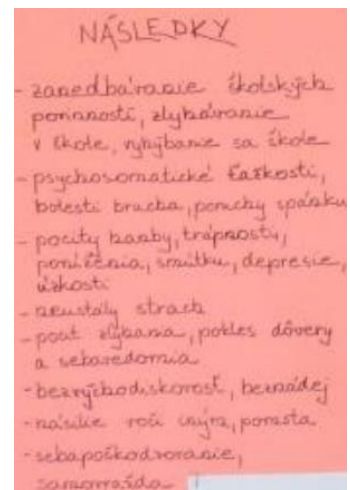 NÁSLEDKY
- zanedbávanie školských
povinností, zlyhávanie
v škole, vyhýbanie sa škole
- psychosomatické ťažkosti,
bolesti brucha, poruchy spánku
- pocity hanby, trápnosti,
poníženia, smútku, depresie,
úzkosti
- neustály strach
- pocit zlyhania, pokles dôvery
a sebavedomia
- bezvýchodiskovosť, beznádej
- násilie voči iným, pomsta
- sebapoškodzovanie,
samovražda